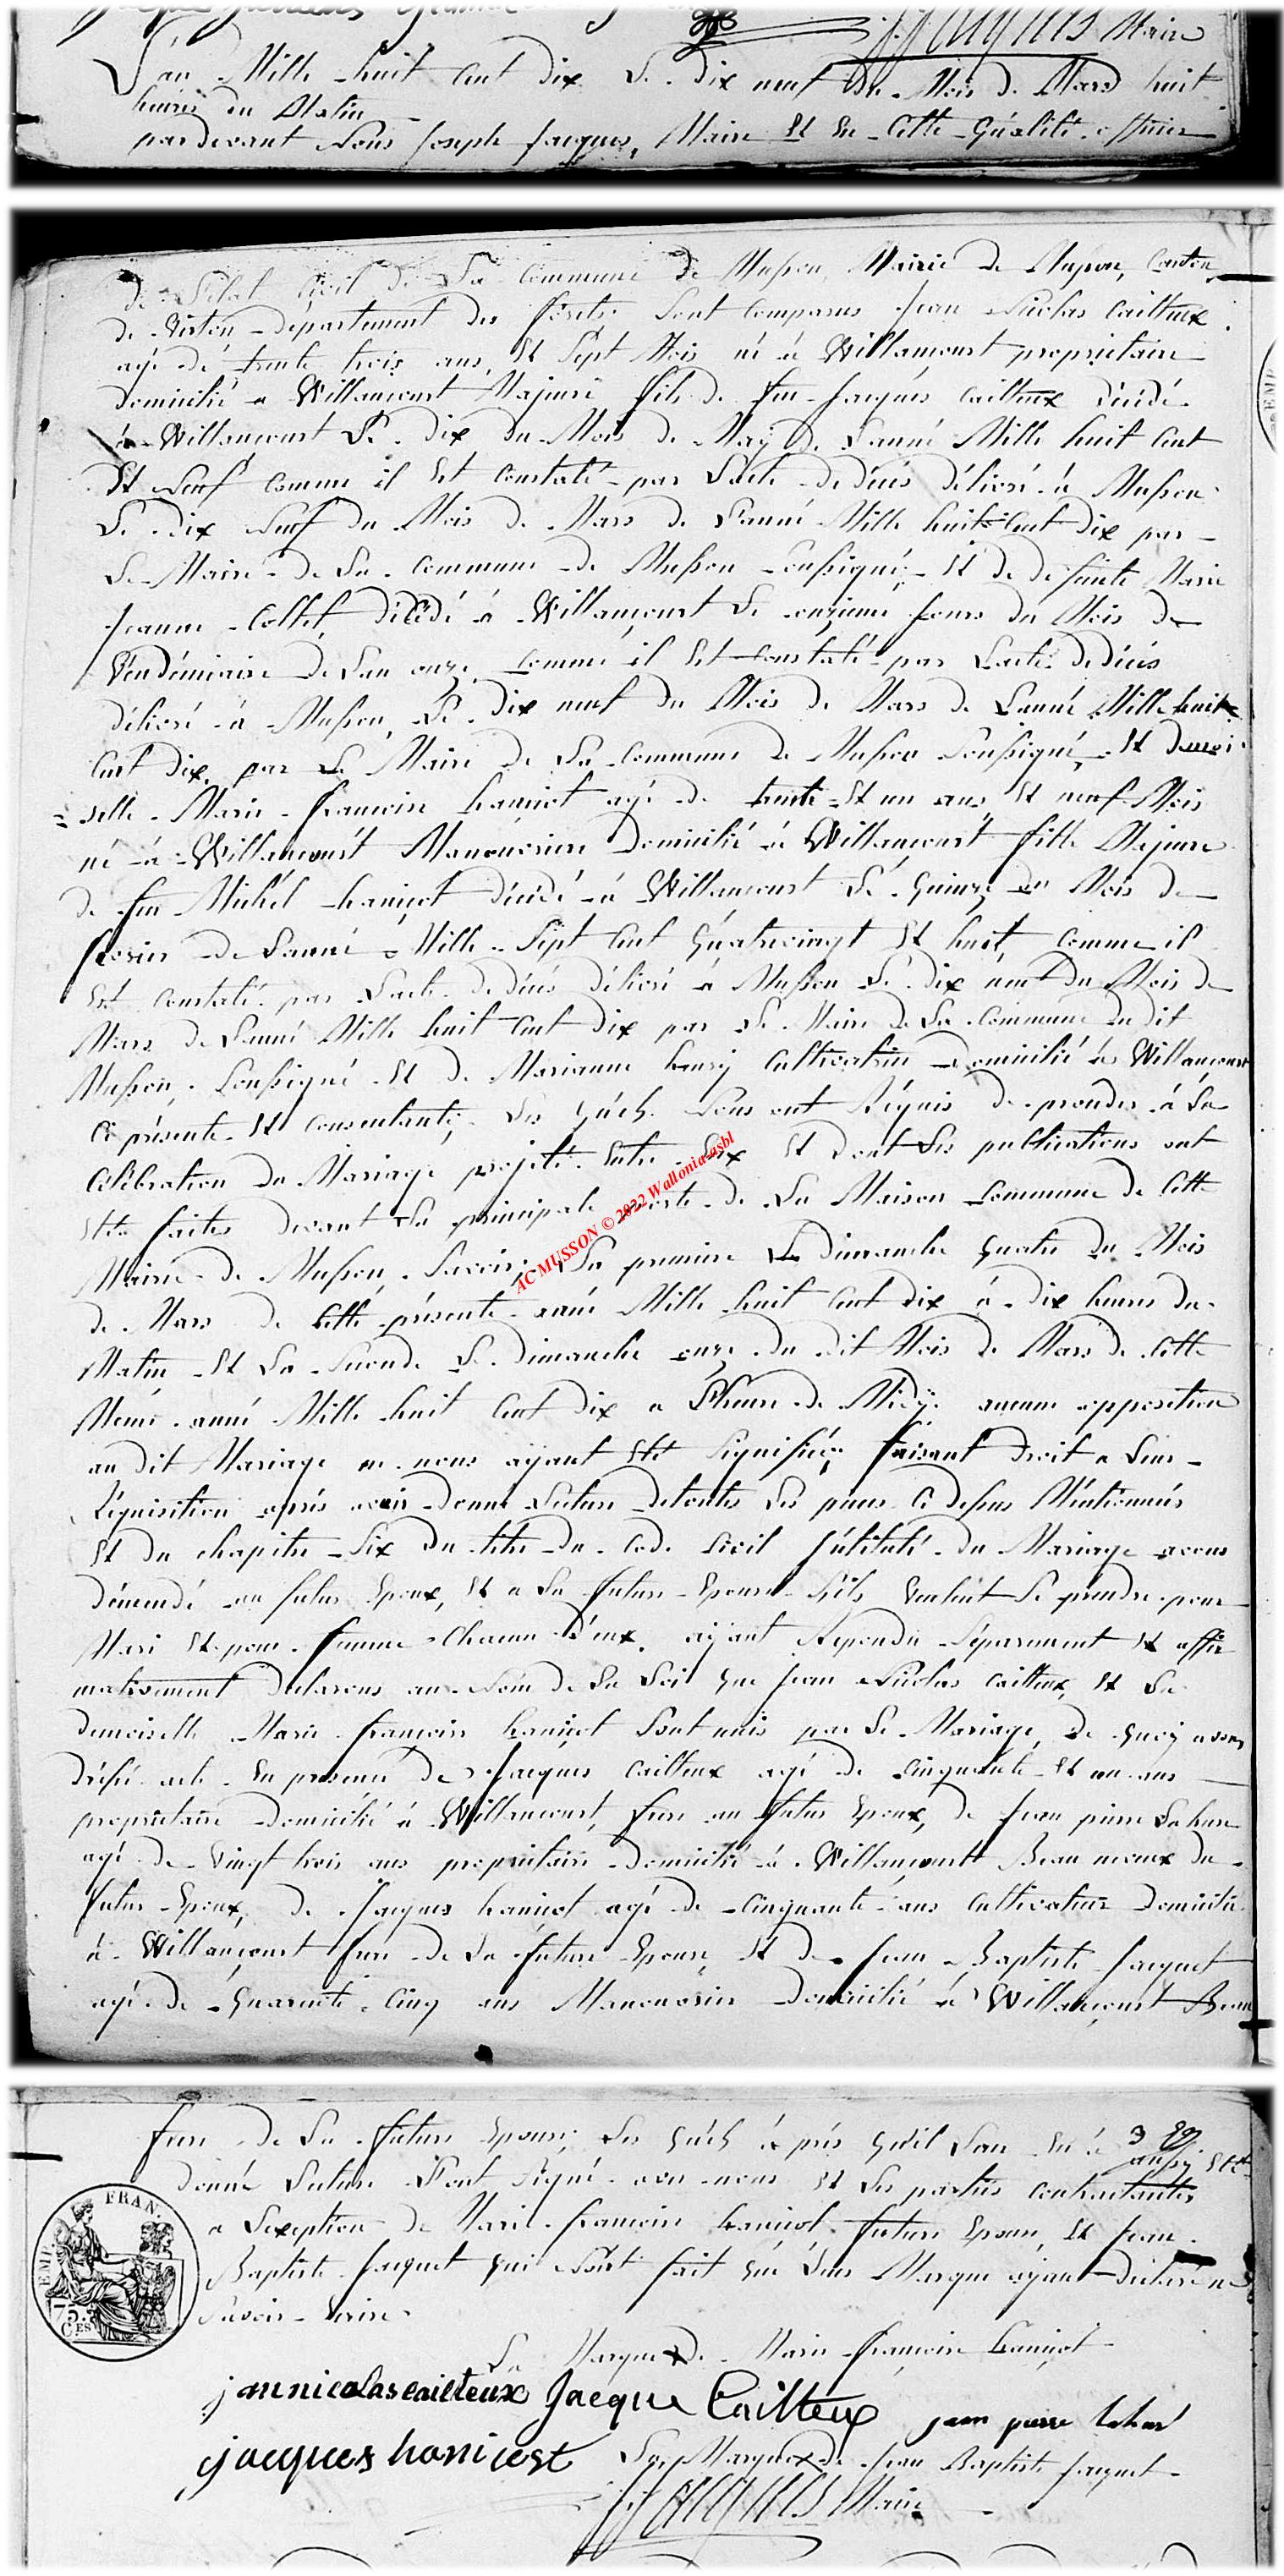 Maire
L'an Mille huit Cent dix Le dix neuf du Mois de Mars huit
heures du Matin
pardevant Nous Joseph Jacques, Maire Et En Cette Qualité officier
de L'Etat Civil de La Commune de Musson Mairie de Musson, Canton
de Virton département des forêts Sont Comparus Jean Nicolas Cailteux
agé de trente trois ans, Et Sept Mois né à Willancourt propriétaire
Domicilié a Willancourt Majeure fils de feu Jacques Cailteux décédé
à Willancourt Le dix du Mois de Maÿ de L'anné Mille huit Cent
Et Neuf comme il Est Constaté par L'acte de décés délivré à Musson
Le dix Neuf du Mois de Mars de L'anné Mille huit Cent dix par
Le Maire de La Commune de Musson Soussigné, Et de defunte Marie
Jeanne Collet décédé à Willancourt Le onzieme Jours du Mois de
Vendémiaire de L'an onze comme il Est Constaté par L'acte de décés
délivré à Musson, Le dix neuf du Mois de Mars de L'anné Mille huit
Cent dix par Le Maire de La Commune de Musson Soussigné, Et demoi
selle Marie françoise hanicot agé de trente Et un ans Et neuf Mois
né à Willancourt Manouvrière Domicilié à Willancourt fille Majeure
de feu Michel hanicot décédé à Willancourt Le Quinze du Mois de
fevrier de L'anné Mille Sept Cent Quatrevingt Et huit comme il
Est Constaté par L'acte de décés délivré à Musson Le dix neuf du Mois de
Mars de L'anné Mille huit Cent dix par Le Maire de La Commune du dit
Musson, Soussigné Et de Marianne henrÿ Cultivatrice Domicilié à Willancourt
Ci présente Et Consentante, Les Quels Nous ont Requis de procéder à La
Célébration du Mariage projeté Entre Eux Et Dont Les publications ont
Eté faites devant La principale porte de La Maison Commune de Cette
Mairie de Musson, Savoir; La premiere Le Dimanche Quatre du Mois
de Mars de Cette présente année Mille huit Cent dix à dix heures du
Matin Et La Seconde Le dimanche onze du dit Mois de Mars de Cette
Meme anné Mille huit Cent dix a L'heure de Midÿ. aucune opposition
au dit Mariage ne nous aÿant Eté Signifiée, faisant Droit a Leur
Réquisition après avoir donné Lecture de toutes Les pieces Ci dessus Mentionnées
Et du chapitre Six du titre du Code Civil Intitulé du Mariage avons
démendé au futur Epoux, Et a La future Epouse S'ils Veulent Se prendre pour
Mari Et pour femme Chacun D'eux aÿant Repondu Séparement Et affir
mativement Déclarons au Nom de La Loi Que Jean Nicolas Cailteux, Et La
demoiselle Marie françoise hanicot Sont unis par Le Mariage, de Quoÿ avons
Dréssé acte En présence de Jacques Cailteux agé de Cinquante Et un ans
propriétaire domicilié à Willancourt, frere au futur Epoux, de Jean pierre Lahure
agé de Vingt trois ans propriétaire domicilié à Willancourt Beau
futur Epoux, de Jacques hanicot agé de Cinquante ans Cultivateur Domicilié
à Willancourt frere de La future Epouse, Et de Jean Baptiste Jacquet
agé de Quarante Cinq ans Manouvrier Domicilié à Willancourt Beau
frere de La future Epouse, Les Quels après Qu'il Leur En à aussy Eté
donné Lecture L'ont Signé avec nous Et Les parties Contractantes
a L'exeption de Marie françoise hanicot, future Epouse, Et Jean
Baptiste Jacquet Qui N'ont fait Que Leur Marque aÿant Déclaré ne
Savoir Ecrire.
La Marque de Marie françoise hanicot
jannicolascailteux Jacque Cailteux jean pierre lahur
jacques hanicost La Marque de Jean Baptiste Jacquet
J. Jacques Maire
EMP. FRAN.
75.
CES
AC MUSSON © 2022 Wallonia-asbl